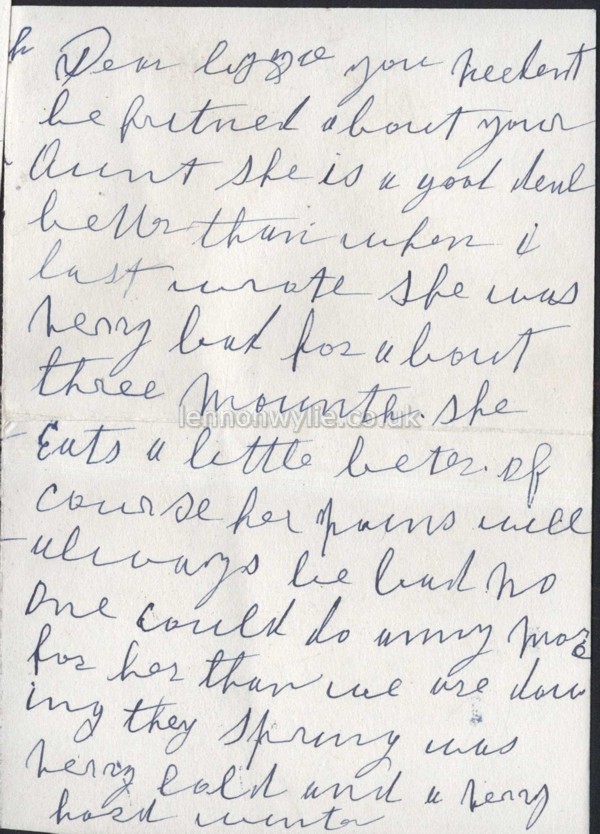 Dear Lizzie you needent
be putned about your
Aunt she is a good deal
better than when i
last wrote she was
verry bad for about
three mounth. she
Eats a little beter. of
course her pains will
always be bad no
one could do anny more
for her than we are doin
ing they spring was
verry cold and a verry
hard winter
lennonwylie.co.uk